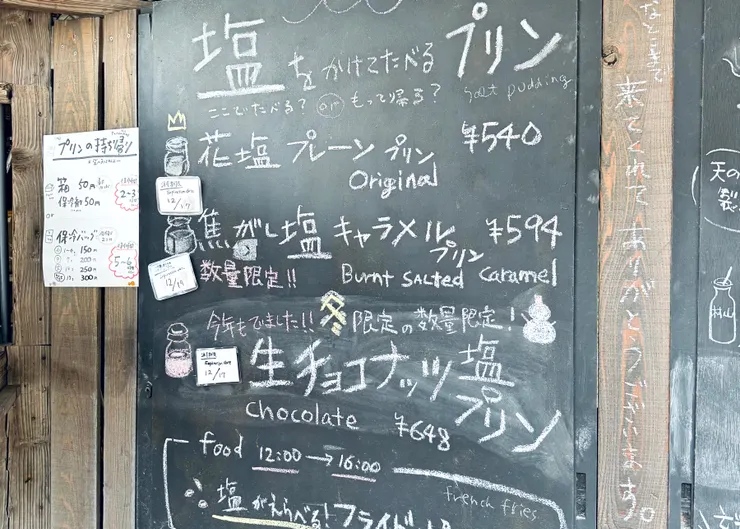 塩をかけてたべるプリン
ここでたべる? or もって帰る?
Salt pudding
花塩 プレーン プリン ¥540
Original
12/17
焦がし塩 キャラメル プリン ¥594
数量限定!!
Burnt SALTED Caramel
12/17
今年もでました!! 冬 限定の数量限定!
生チョコナッツ塩プリン
12/17
Chocolate ¥648
food 12:00→16:00
french fries
塩がえらべる!フライドポ
プリンの持ち帰り
箱 50円
保冷剤 50円
2-3
保冷バッグ
150円
200円
250円
300円
5-6
なとまで
来てくれてありがとうございます。
天の
製
村山